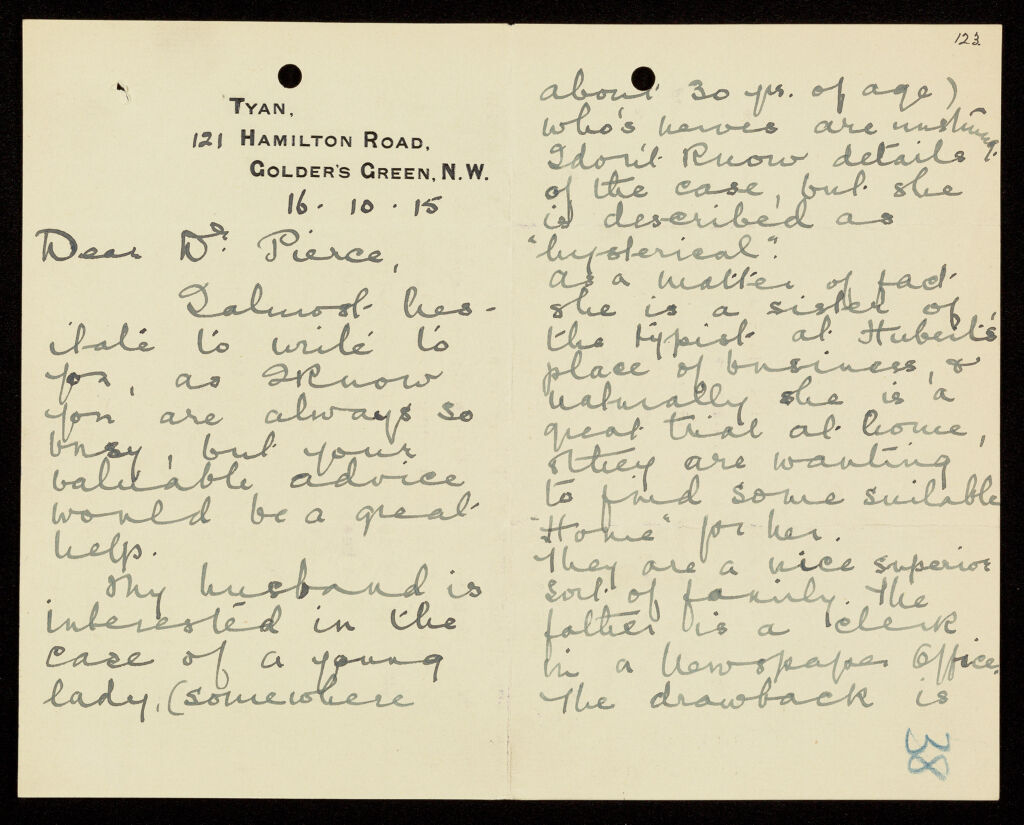 TYAN,
121 HAMILTON ROAD,
GOLDER'S GREEN, N.W.
16 · 10 · 15
Dear Dr. Pierce,
I almost hes-
itate to write to
you, as I know
you are always so
busy, but your
valuable advice
would be a great
help.
My husband is
interested in the
case of a young
lady, (somewhere
123.
about 30 yrs. of age)
who's nerves are unstrung.
I don't know details
of the case, but she
is described as
"hysterical".
As a matter of fact
she is a sister of
the typist at Hubert's
place of business, &
naturally she is a
great trial at home,
& they are wanting
to find some suitable
"Home" for her.
They are a nice superior
sort of family. The
father is a clerk
in a Newspaper Office.
The drawback is
38